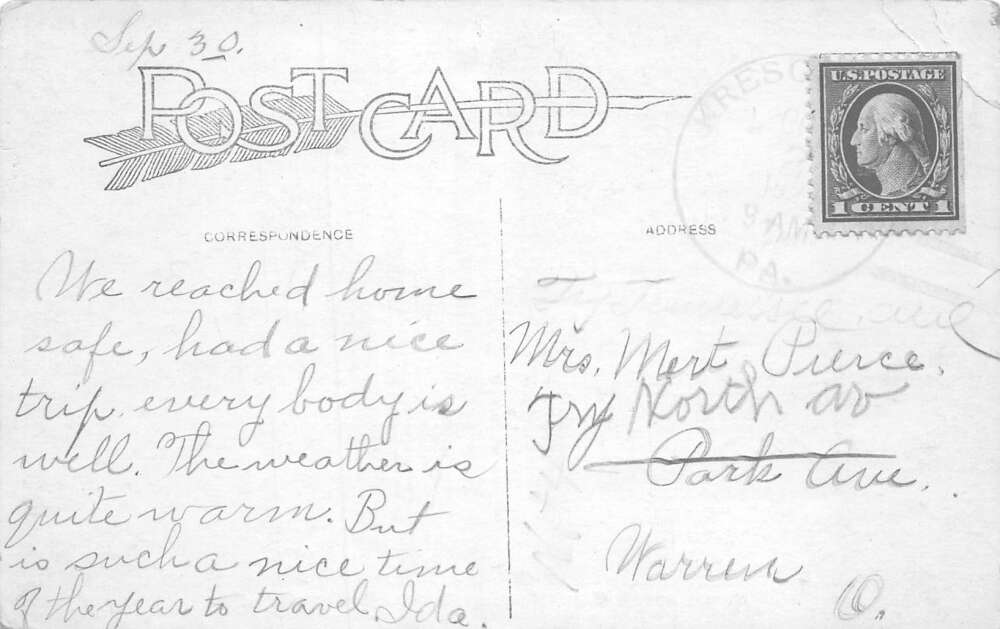 Sep 30.
POST CARD
U.S. POSTAGE
1 CENT 1
8 AM
PA.
CORRESPONDENCE
We reached home
safe, had a nice
trip. every body is
well. The weather is
quite warm. But
is such a nice time
of the year to travel. Ida.
ADDRESS
Try Tennessee ave
Mrs. Mert Pierce.
Try North av
Park Ave.
Warren
O.